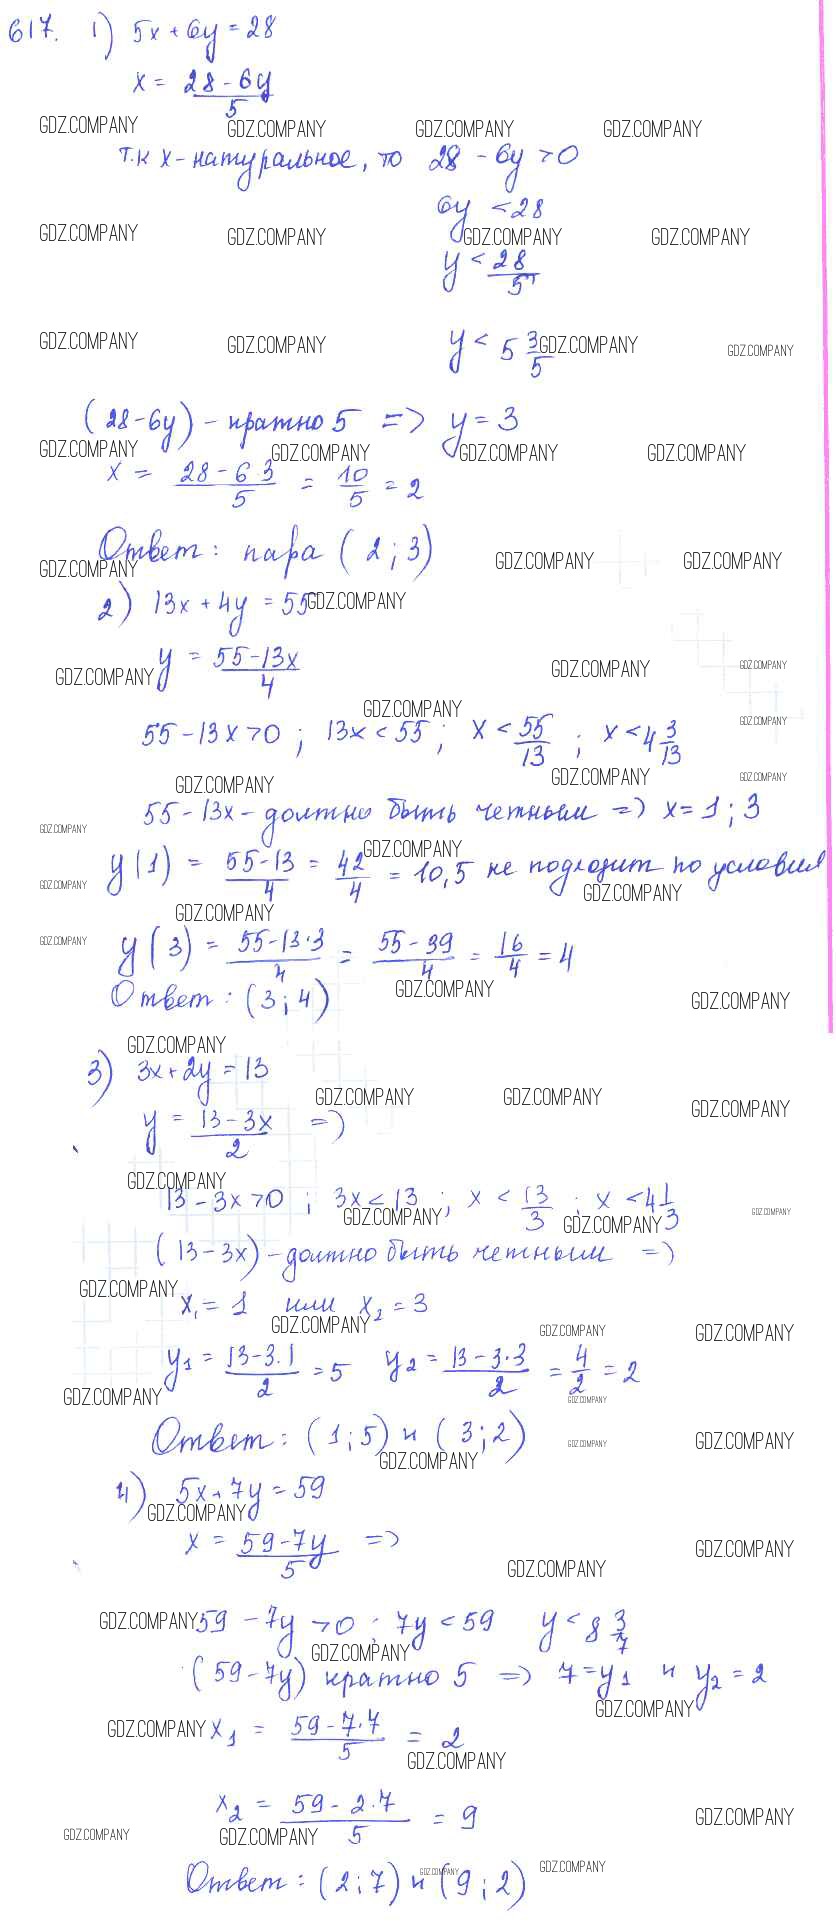 617. 1) 5x + 6y = 28
x = (28 - 6y)/5
GDZ.COMPANY GDZ.COMPANY GDZ.COMPANY GDZ.COMPANY
т.к x - натуральное, то 28 - 6y > 0
6y < 28
GDZ.COMPANY GDZ.COMPANY GDZ.COMPANY GDZ.COMPANY
y < 28/5
GDZ.COMPANY GDZ.COMPANY y < 5 3/5 GDZ.COMPANY GDZ.COMPANY
(28 - 6y) - кратно 5 => y = 3
GDZ.COMPANY GDZ.COMPANY GDZ.COMPANY GDZ.COMPANY
x = (28 - 6 3)/5 = 10/5 = 2
Ответ: пара (2; 3)
GDZ.COMPANY GDZ.COMPANY GDZ.COMPANY
2) 13x + 4y = 55 GDZ.COMPANY
y = (55 - 13x)/4
GDZ.COMPANY GDZ.COMPANY GDZ.COMPANY
GDZ.COMPANY GDZ.COMPANY
55 - 13x > 0; 13x < 55; x < 55/13; x < 4 3/13
GDZ.COMPANY GDZ.COMPANY GDZ.COMPANY
55 - 13x - долтно быть четным => x = 1; 3
GDZ.COMPANY GDZ.COMPANY
y(1) = (55 - 13)/4 = 42/4 = 10,5 не подходит по условия
GDZ.COMPANY GDZ.COMPANY
GDZ.COMPANY GDZ.COMPANY
y(3) = (55 - 13·3)/4 = (55 - 39)/4 = 16/4 = 4
Ответ: (3; 4) GDZ.COMPANY GDZ.COMPANY
GDZ.COMPANY
3) 3x + 2y = 13
GDZ.COMPANY GDZ.COMPANY GDZ.COMPANY
y = (13 - 3x)/2 =>
GDZ.COMPANY
13 - 3x > 0; 3x < 13; x < 13/3; x < 4 1/3
GDZ.COMPANY GDZ.COMPANY GDZ.COMPANY
(13 - 3x) - долтно быть четным =>
GDZ.COMPANY
x₁ = 1 или x₂ = 3
GDZ.COMPANY GDZ.COMPANY GDZ.COMPANY
y₁ = (13 - 3·1)/2 = 5 y₂ = (13 - 3·3)/2 = 4/2 = 2
GDZ.COMPANY GDZ.COMPANY
Ответ: (1; 5) и (3; 2) GDZ.COMPANY GDZ.COMPANY
GDZ.COMPANY
4) 5x + 7y = 59
GDZ.COMPANY
x = (59 - 7y)/5 => GDZ.COMPANY
GDZ.COMPANY
GDZ.COMPANY 59 - 7y > 0; 7y < 59 y < 8 3/7
GDZ.COMPANY
(59 - 7y) кратно 5 => 7 = y₁ и y₂ = 2
GDZ.COMPANY
GDZ.COMPANY x₁ = (59 - 7·7)/5 = 2
GDZ.COMPANY
x₂ = (59 - 2·7)/5 = 9 GDZ.COMPANY
GDZ.COMPANY GDZ.COMPANY
Ответ: (2; 7) и (9; 2) GDZ.COMPANY GDZ.COMPANY